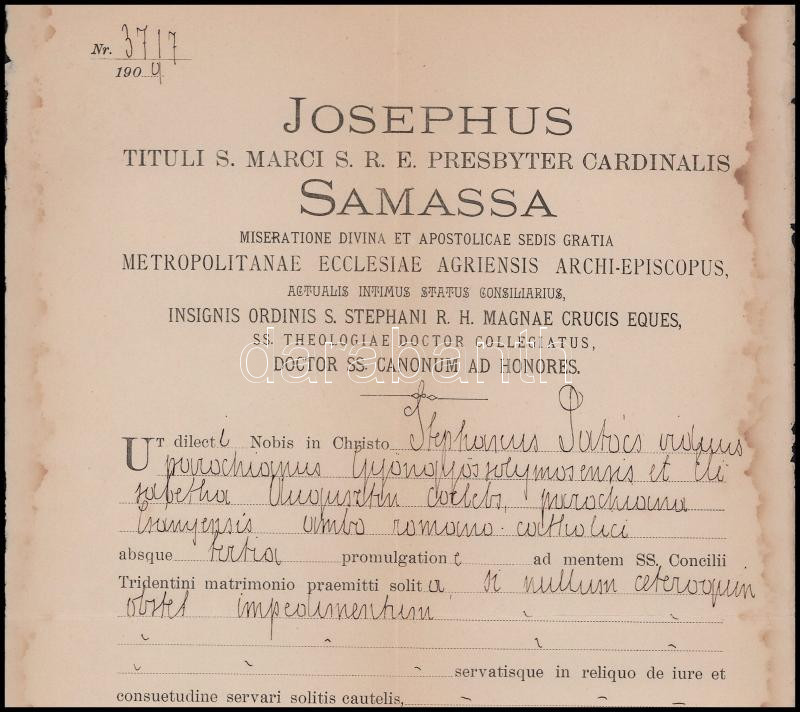 Nr. 3717
1909
JOSEPHUS
TITULI S. MARCI S. R. E. PRESBYTER CARDINALIS
SAMASSA
MISERATIONE DIVINA ET APOSTOLICAE SEDIS GRATIA
METROPOLITANAE ECCLESIAE AGRIENSIS ARCHI-EPISCOPUS,
ACTUALIS INTIMUS STATUS CONSILIARIUS,
INSIGNIS ORDINIS S. STEPHANI R. H. MAGNAE CRUCIS EQUES,
SS. THEOLOGIAE DOCTOR COLLEGIATUS,
darabanth
DOCTOR SS. CANONUM AD HONORES.
UT dilecti Nobis in Christo Stephanus Patócs viduus
parochianus Gyöngyössolymosensis et Eli
sabetha Augusztin coelebs, parochiana
Csányensis ambo romano-catholici
absque tertia promulgatione ad mentem SS. Concilii
Tridentini matrimonio praemitti solita, si nullum ceteroquin
obstet impedimentum
servatisque in reliquo de iure et
consuetudine servari solitis cautelis,